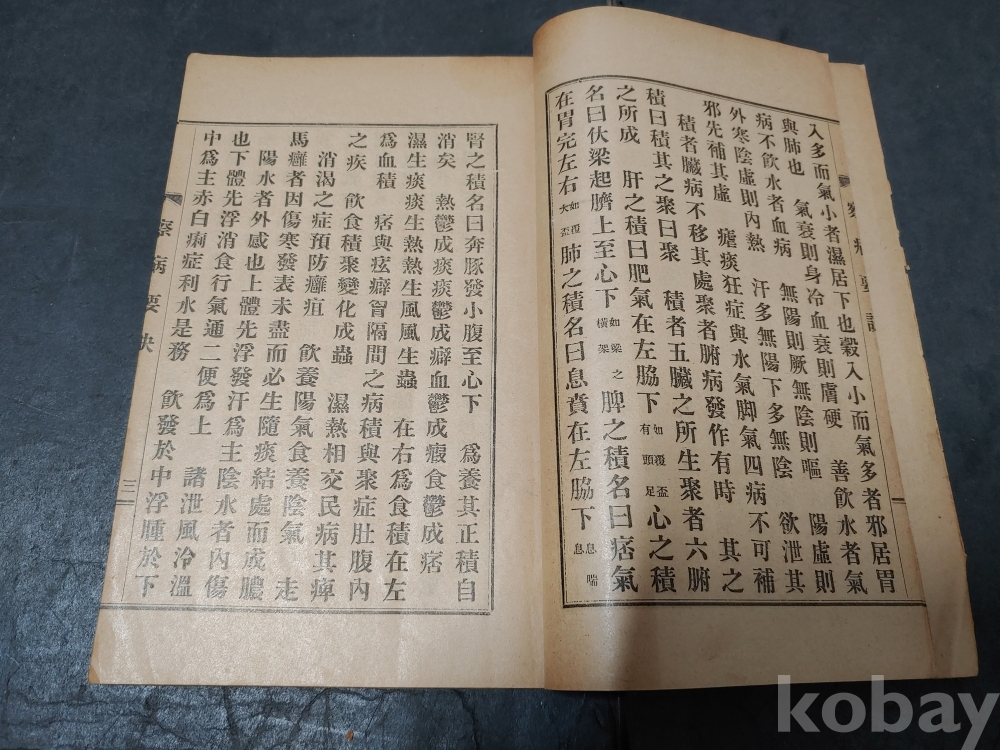 入多而氣小者濕居下也糓入小而氣多者邪居胃
與肺也 氣衰則身冷血衰則膚硬 善飮水者氣
病不飮水者血病 無陽則厥無陰則嘔 陽虛則
外寒陰虛則內熱 汗多無陽下多無陰 欲泄其
邪先補其虛 瘧痰狂症與水氣脚氣四病不可補
積者臟病不移其處聚者腑病發作有時 其之
積曰積其之聚曰聚 積者五臟之所生聚者六腑
之所成 肝之積曰肥氣在左脇下 如覆盃有頭足 心之積
名曰伏梁起臍上至心下 如梁之橫架 脾之積名曰痞氣
在胃完左右 如覆大盃 肺之積名曰息賁在左脇下 息喘息
腎之積名曰奔豚發小腹至心下 爲養其正積自
消矣 熱鬱成痰痰鬱成癖血鬱成瘕食鬱成痞
濕生痰痰生熱熱生風風生蟲 在右爲食積在左
爲血積 痞與痃癖胷隔間之病積與聚症肚腹內
之疾 飮食積聚變化成蟲 濕熱相交民病其痺
消渴之症預防癰疽 飮養陽氣食養陰氣 走
馬癰者因傷寒發表未盡而必生隨痰結處而成膿
陽水者外感也上體先浮發汗爲主陰水者內傷
也下體先浮消食行氣通二便爲上 諸泄風冷溫
中爲主赤白痢症利水是務 飮發於中浮腫於下
察病要決
三
kobay